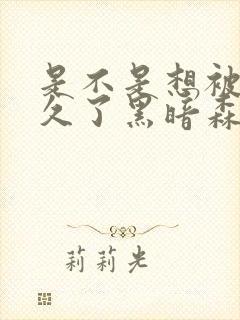 是不是想被
久了黑暗森
莉莉光